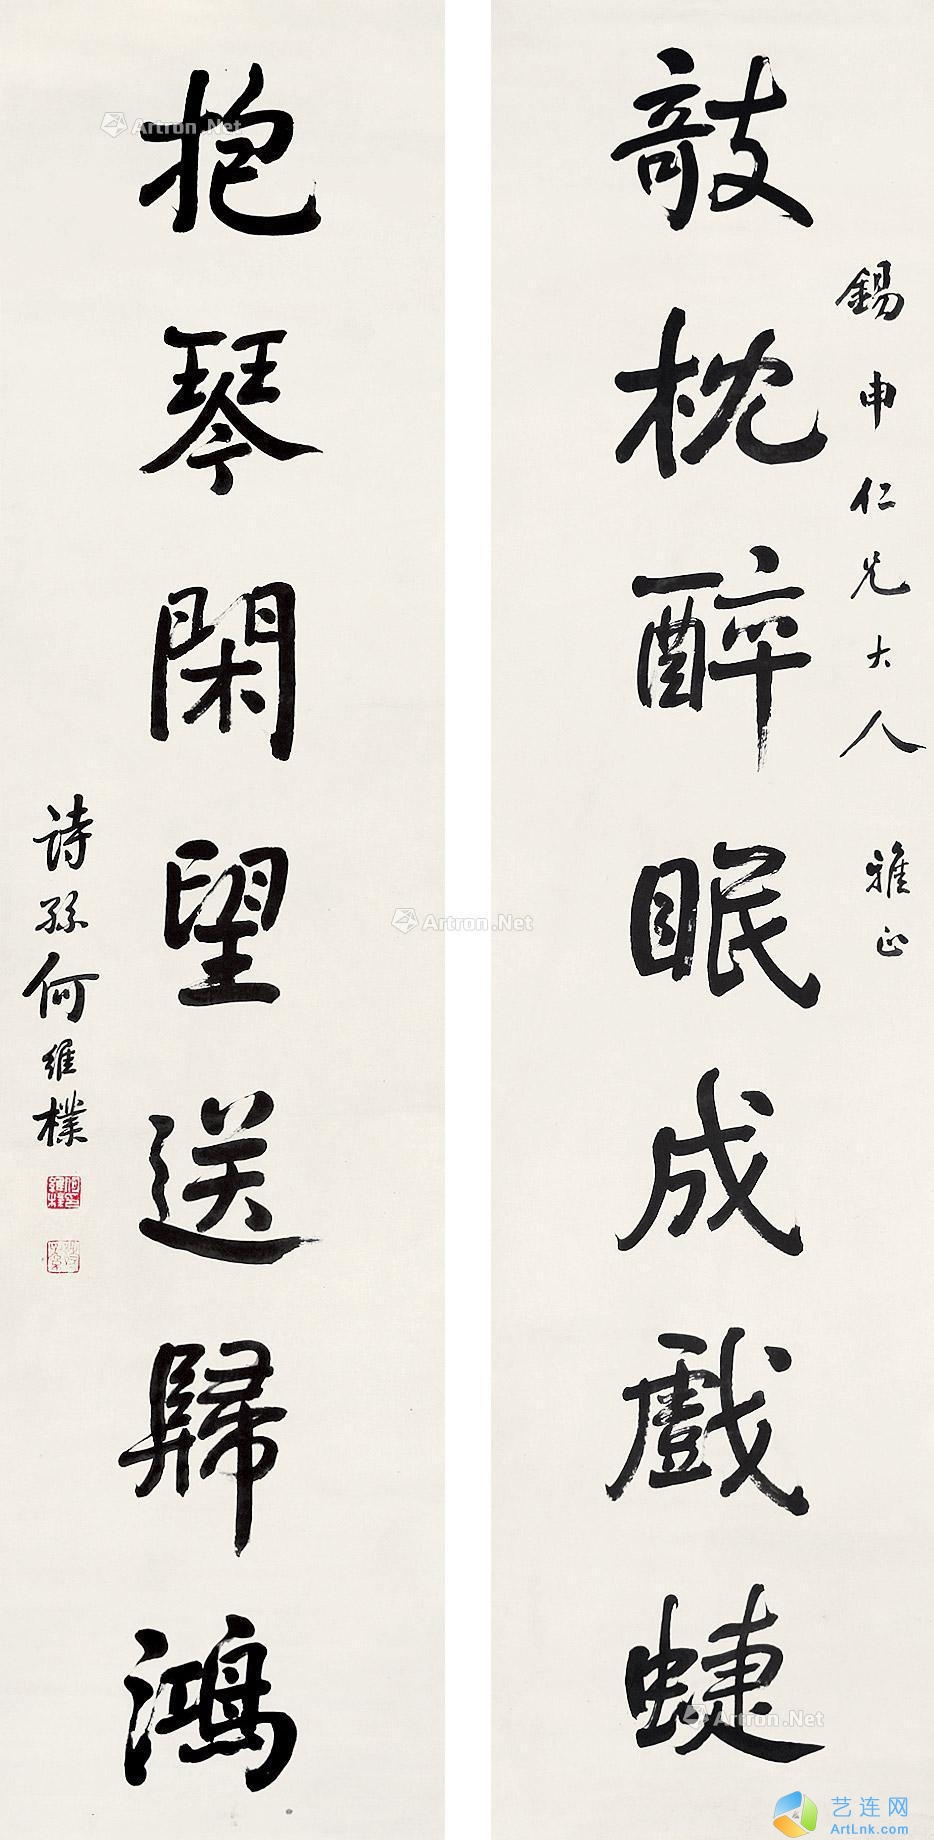 錫申仁兄大人 雅正
攲枕醉眠成戲蜨
抱琴閑望送歸鴻
詩孫何維樸
Artron.Net
Artron.Net
Artron.Net
艺连网
ArtLnk.com